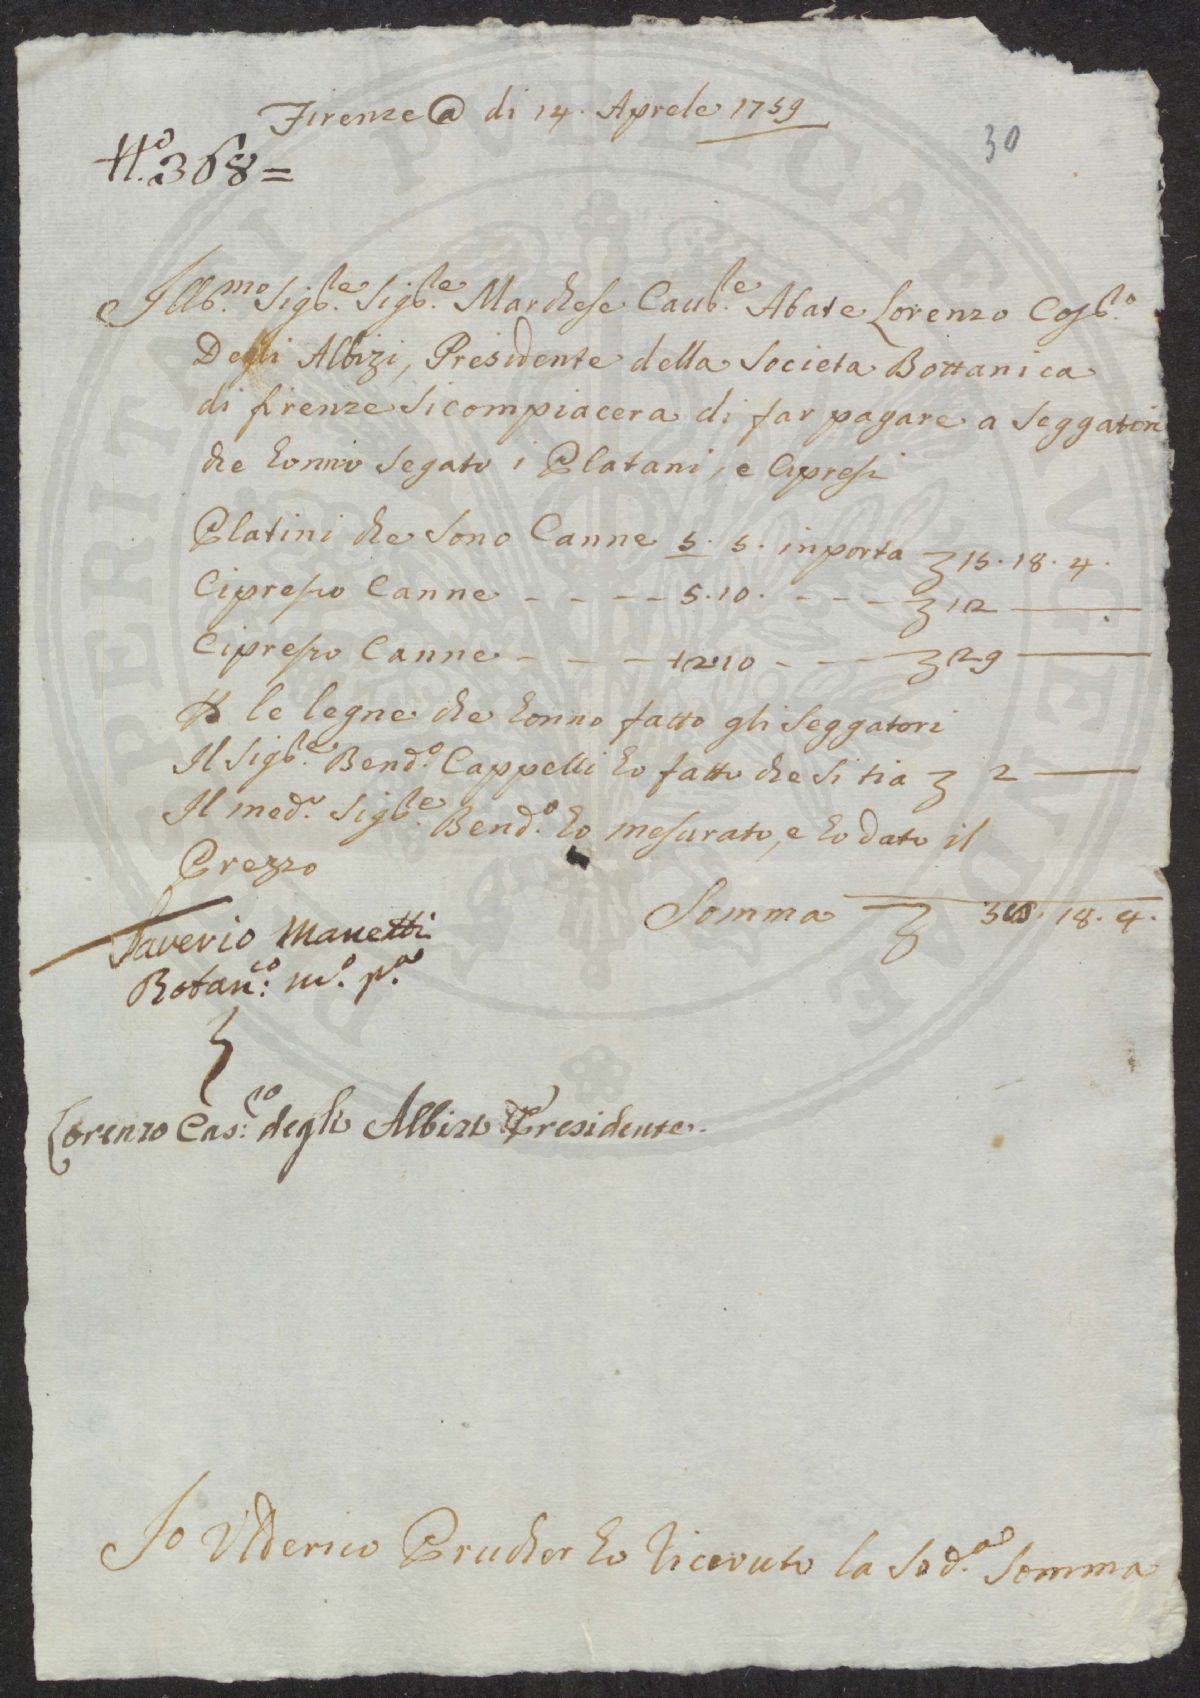 Firenze @ di 14. Aprele 1759
30
No. 368 =
Illb.mo Sigb.re Sigb.re Marchese Caub.re Abate Lorenzo
Degli Albizi, Presidente della Societa Bottanica
di firenze Si compiacera di far pagare a Seggatori
che honno Segato i Platani, e Cipresi
Platini che Sono Canne 5. 5. inporta 15. 18. 4.
Cipresso Canne - - - - - 5.10. - - - - 12 —
Cipresso Canne - - - - 12.10 - - - 29 —
le legne che honno fatto gli Seggatori
Il Sigb.re Bend.o Cappelli ho fatto che Si tia 2 —
Il med.o Sigb.re Bend.o ho mesurato, e ho dato il
Prezzo
Somma 18. 4.
Saverio Manetti
Botan.co m.o p.a
Lorenzo Cas.o degli Albizi Presidente.
Io Ulderico Prucher ho Riceuuto la Sod.a Somma
PERITATI PUBLICAE AUGENDAE